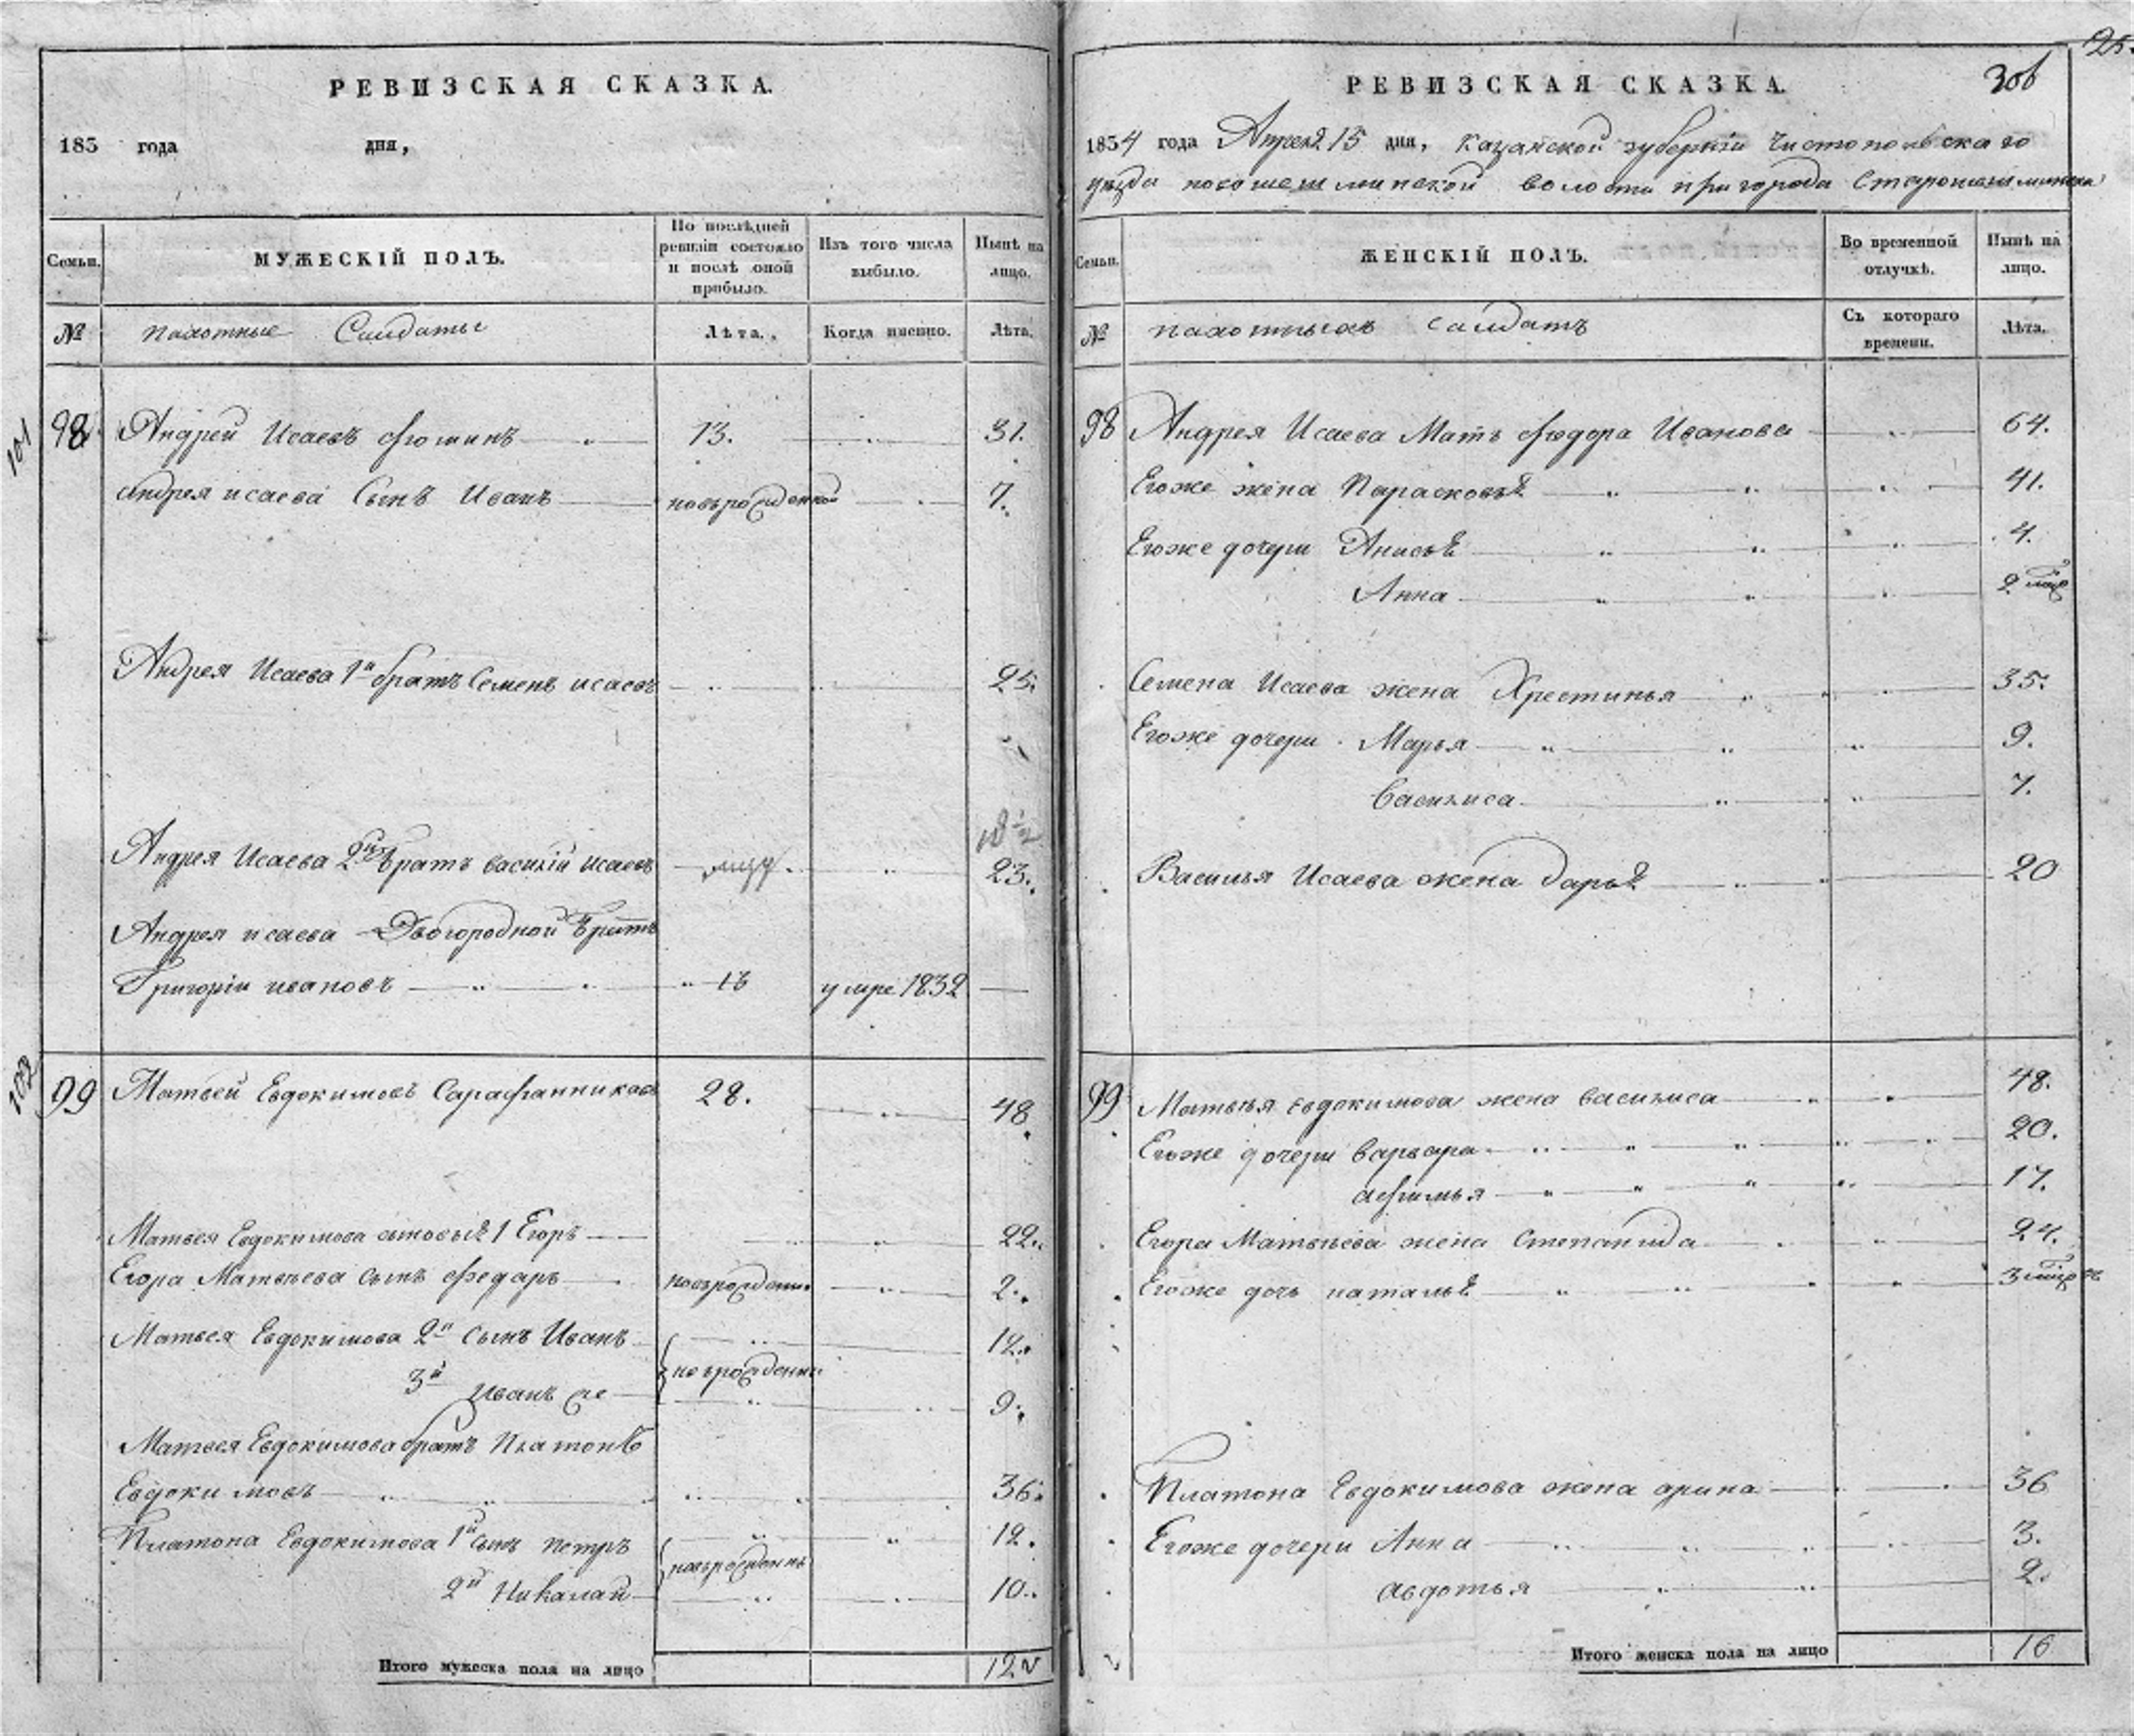 РЕВИЗСКАЯ СКАЗКА.
183 года дня,
Семьи.
МУЖЕСКІЙ ПОЛЪ.
По послѣдней ревизіи состояло и послѣ оной прибыло.
Изъ того числа выбыло.
Нынѣ на лицо.
№
пахотные Салдаты
Лѣта.
Когда именно.
Лѣта.
101
98 Андрей Исаевъ Фроминъ 13. 31.
Андрея исаева Сынъ Иванъ новърожденной 7.
Андрея Исаева 1й братъ Семенъ исаевъ 25.
Андрея Исаева 2й братъ василій исаевъ 23.
Андрея исаева Двоюродной братъ
Григоріи ивановъ 18 умре 1832
102
99 Матвей Евдокимовъ Сарафанниковъ 28. 48.
Матвея Евдокимова сыновья 1 Егоръ 22.
Егора Матвеева сынъ Федаръ новърожден. 2.
Матвея Евдокимова 2й сынъ Иванъ 12.
новърожденны
3й Иванъ же 9.
Матвея Евдокимова братъ Платонъ
Евдокимовъ 36.
Платона Евдокимова 1й сынъ петръ 12.
новърожденны
2й Никалай 10.
Итого мужеска пола на лицо 12
25.
306
РЕВИЗСКАЯ СКАЗКА.
1834 года Апреля 15 дня, Казанской губерніи Чистопольскаго
уезда новошешминской волости пригорода Старошешминска
Семьи.
ЖЕНСКІЙ ПОЛЪ.
Во временной отлучкѣ.
Нынѣ на лицо.
№
пахотныхъ Салдатъ
Съ котораго времени.
Лѣта.
98 Андрея Исаева Мать Федора Иванова 64.
Егоже жена Парасковья 41.
Егоже дочери Анисья 4.
Анна 2 мцъ
Семена Исаева жена Хрестинья 35.
Егоже дочери Марья 9.
Василиса 7.
Василья Исаева жена дарья 20
99 Матвея Евдокимова жена василиса 48.
Егоже дочери варвара 20.
афимья 17.
Егора Матвеева жена Степанида 24.
Егоже дочь наталья 3 мцъ
Платона Евдокимова жена арина 36
Егоже дочери Анна 3.
авдотья 2.
Итого женска пола на лицо 16